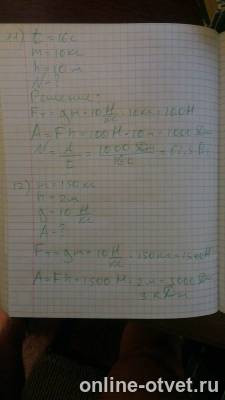 11) t = 16c
m = 10кг
h = 10м
N - ?
Решение:
Fт = gm = 10 Н/кг · 10кг = 100Н
A = Fh = 100Н · 10м = 1000 Дж
N = A/t = 1000 Дж/16с = 62,5 Вт
12) m = 150кг
h = 2м
g = 10 Н/кг
A - ?
Fт = gm = 10 Н/кг · 150кг = 1500Н
A = Fh = 1500Н · 2м = 3000 Дж
3 кДж
online-otvet.ru